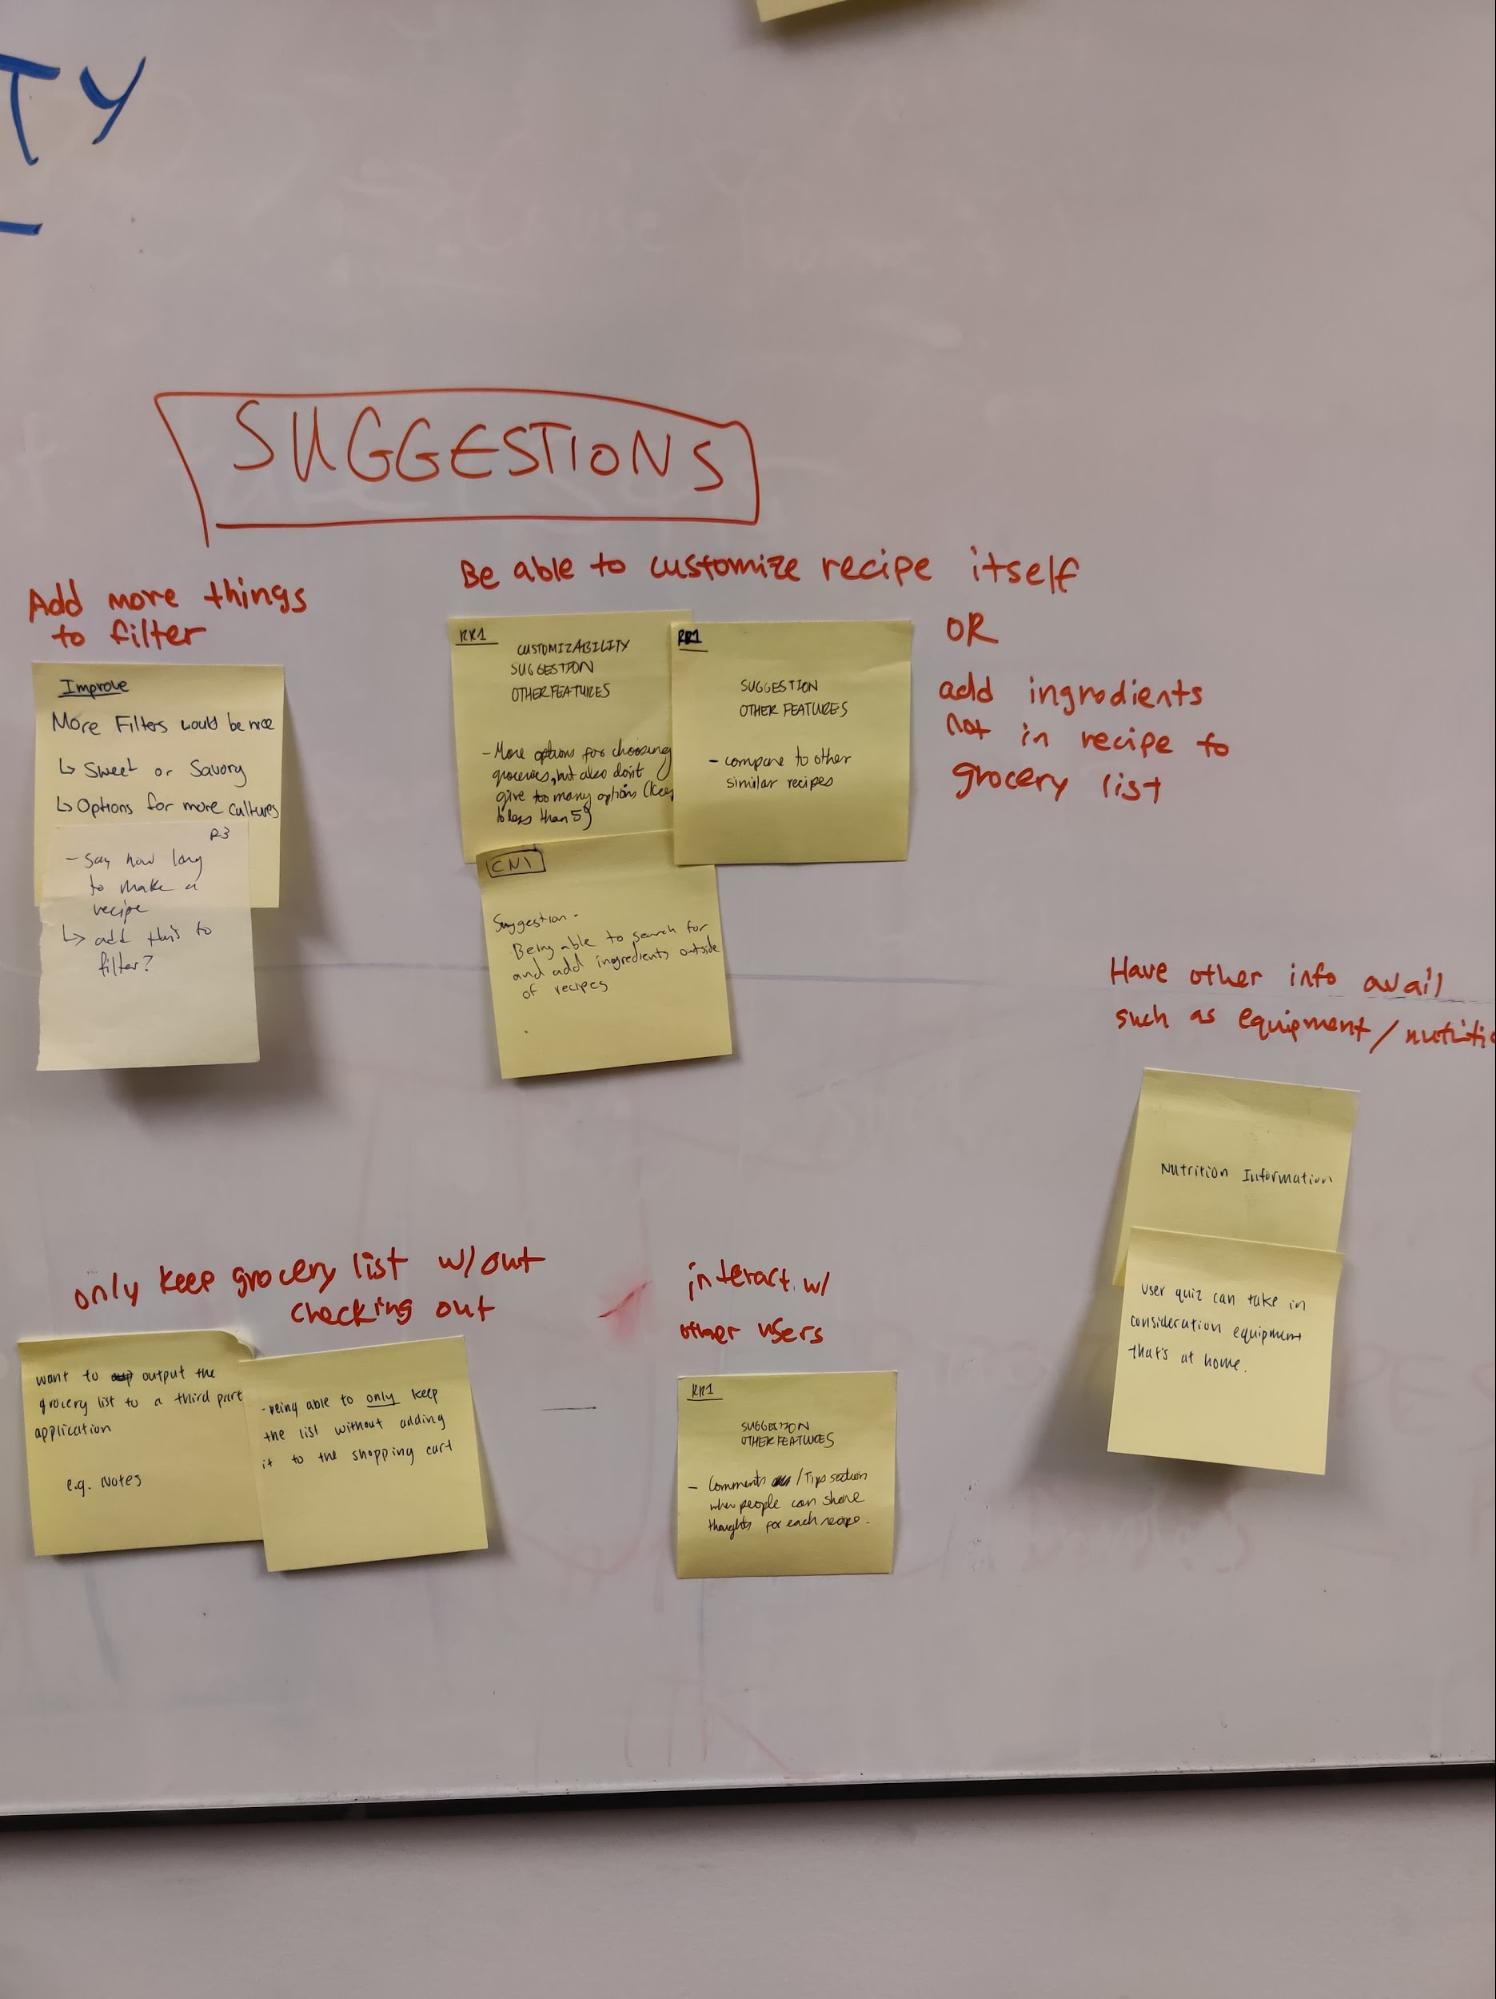 TY
SUGGESTIONS
Add more things
to filter
Improve
More Filters would be nice
↳ Sweet or Savory
↳ Options for more cultures
R3
- Say how long
to make a
recipe
↳ add this to
filter?
Be able to customize recipe itself
OR
add ingredients
not in recipe to
grocery list
RR1
CUSTOMIZABILITY
SUGGESTION
OTHER FEATURES
- More options for choosing
groceries, but also don't
give too many options (keep
to less than 5)
RR1
SUGGESTION
OTHER FEATURES
- compare to other
similar recipes
CN1
Suggestion -
Being able to search for
and add ingredients outside
of recipes
Have other info avail
such as equipment/nutritio
Nutrition Information
User quiz can take in
consideration equipment
that's at home.
only keep grocery list w/out
checking out
want to output the
grocery list to a third part
application
e.g. Notes
- being able to only keep
the list without adding
it to the shopping cart
interact w/
other users
RR1
SUGGESTION
OTHER FEATURES
- Comments /Tips section
when people can share
thoughts for each recipe.